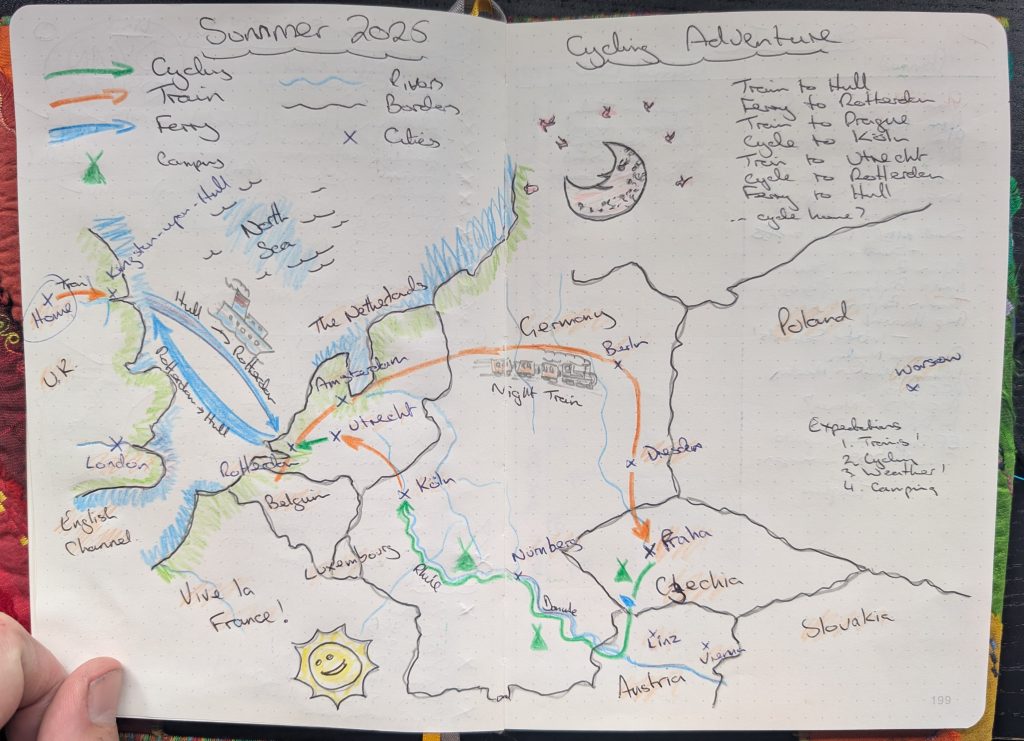 Summer 2025
Cycling Adventure
Cycling
Train
Ferry
Camping
Rivers
Borders
Cities
Train to Hull
Ferry to Rotterdam
Train to Prague
Cycle to Köln
Train to Utrecht
Cycle to Rotterdam
Ferry to Hull
... cycle home?
Kingston-upon-Hull
North
Sea
Train
Home
Hull → Rotterdam
Rotterdam → Hull
The Netherlands
Germany
Poland
U.K.
Amsterdam
Berlin
Night Train
Warsaw
Utrecht
London
Rotterdam
Belgium
Köln
Dresden
Expectations
1. Trains!
2. Cycling
3. Weather!
4. Camping
English
Channel
Luxembourg
Nürnberg
Praha
Vive la
France!
Danube
Czechia
Linz
Vienna
Slovakia
Austria
199